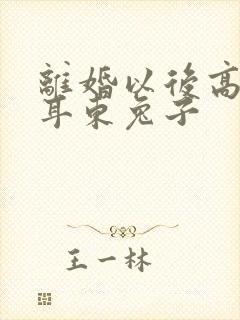 離婚以後高
耳東兔子
王一林